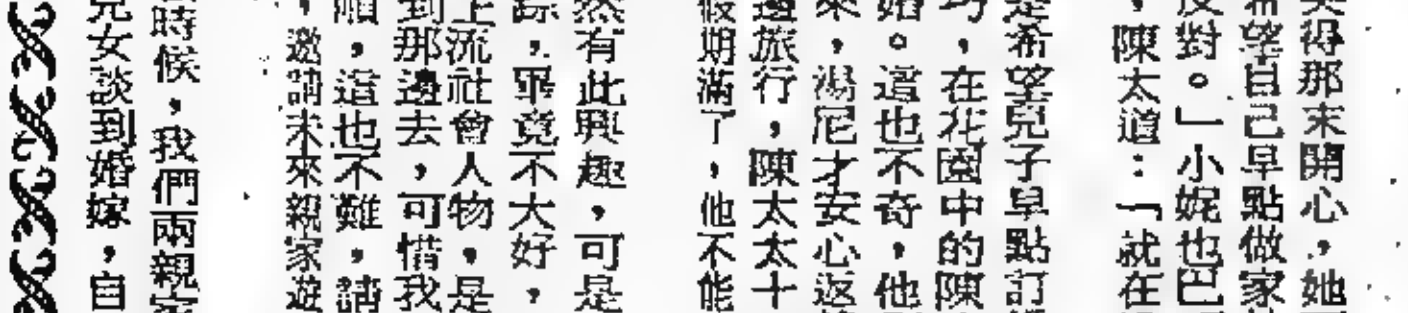 得那末開心,她
希望自己早點做家
反對。」小妮也巴
,陳太道:「就在
是希望兒子早點訂
巧,在花園中的陳
婚。這也不奇,他
來,湯尼才安心返
邊旅行,陳太太十
假期滿了,他不能
然有此興趣,可是
踪,畢竟不大好,
上流社會人物,是
到那邊去,可惜我
順,這也不難,請
,邀請未來親家遊
時候,我們兩親家
兒女談到婚嫁,自